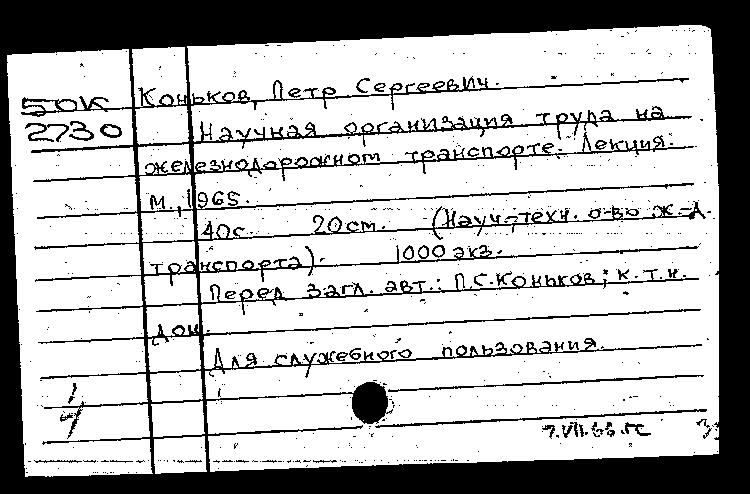 50К Коньков, Петр Сергеевич.
2730 Научная организация труда на
железнодорожном транспорте. Лекция.
М., 1965.
40с. 20см. (Науч.-техн. о-во ж.-д.
транспорта). 1000 экз.
Перед загл. авт.: П.С.Коньков; к.т.н.
доц.
Для служебного пользования.
1/4
7.VII.66.